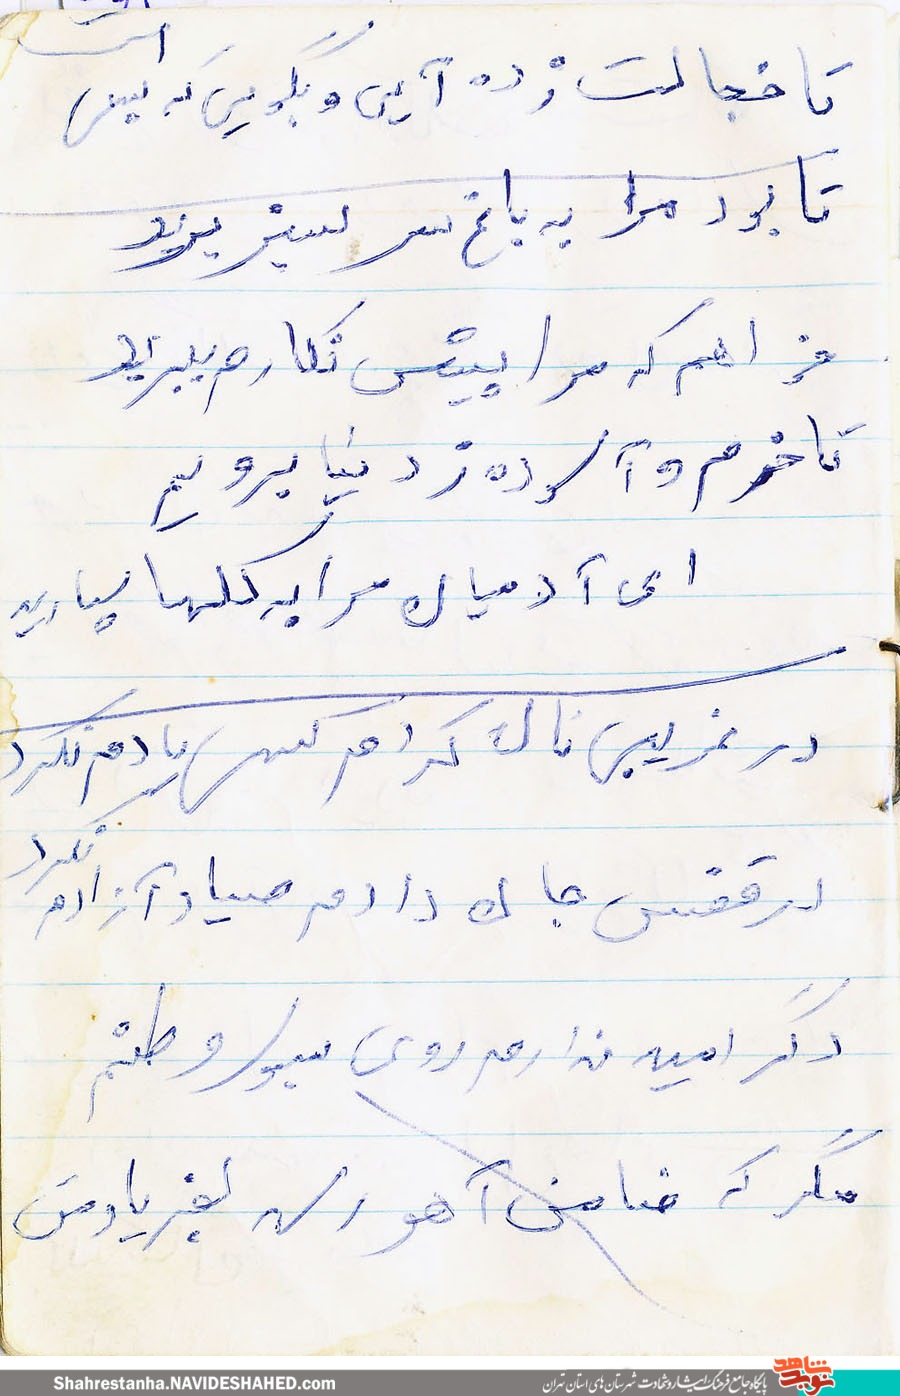 است
تا خجالت زده آیی و بگویی که ببین
تا بود مرا به باغ سر سبز برید
خواهم که مرا پیش نگارم ببرید
تا خرم و آسوده ز دنیا برویم
ای آدمیان مرا به گلها سپارید
در غریبی ناله کردم کسی یادم نکرد
در قفس جان دادم صیاد آزادم نکرد
دگر امید ندارم روی سوی وطنم
مگر که ضامن آهو رسد بفریاد من
Shahrestanha.NAVIDESHAHED.com
نوید شاهد
پایگاه جامع فرهنگ ایثار و شهادت شهرستان های استان تهران